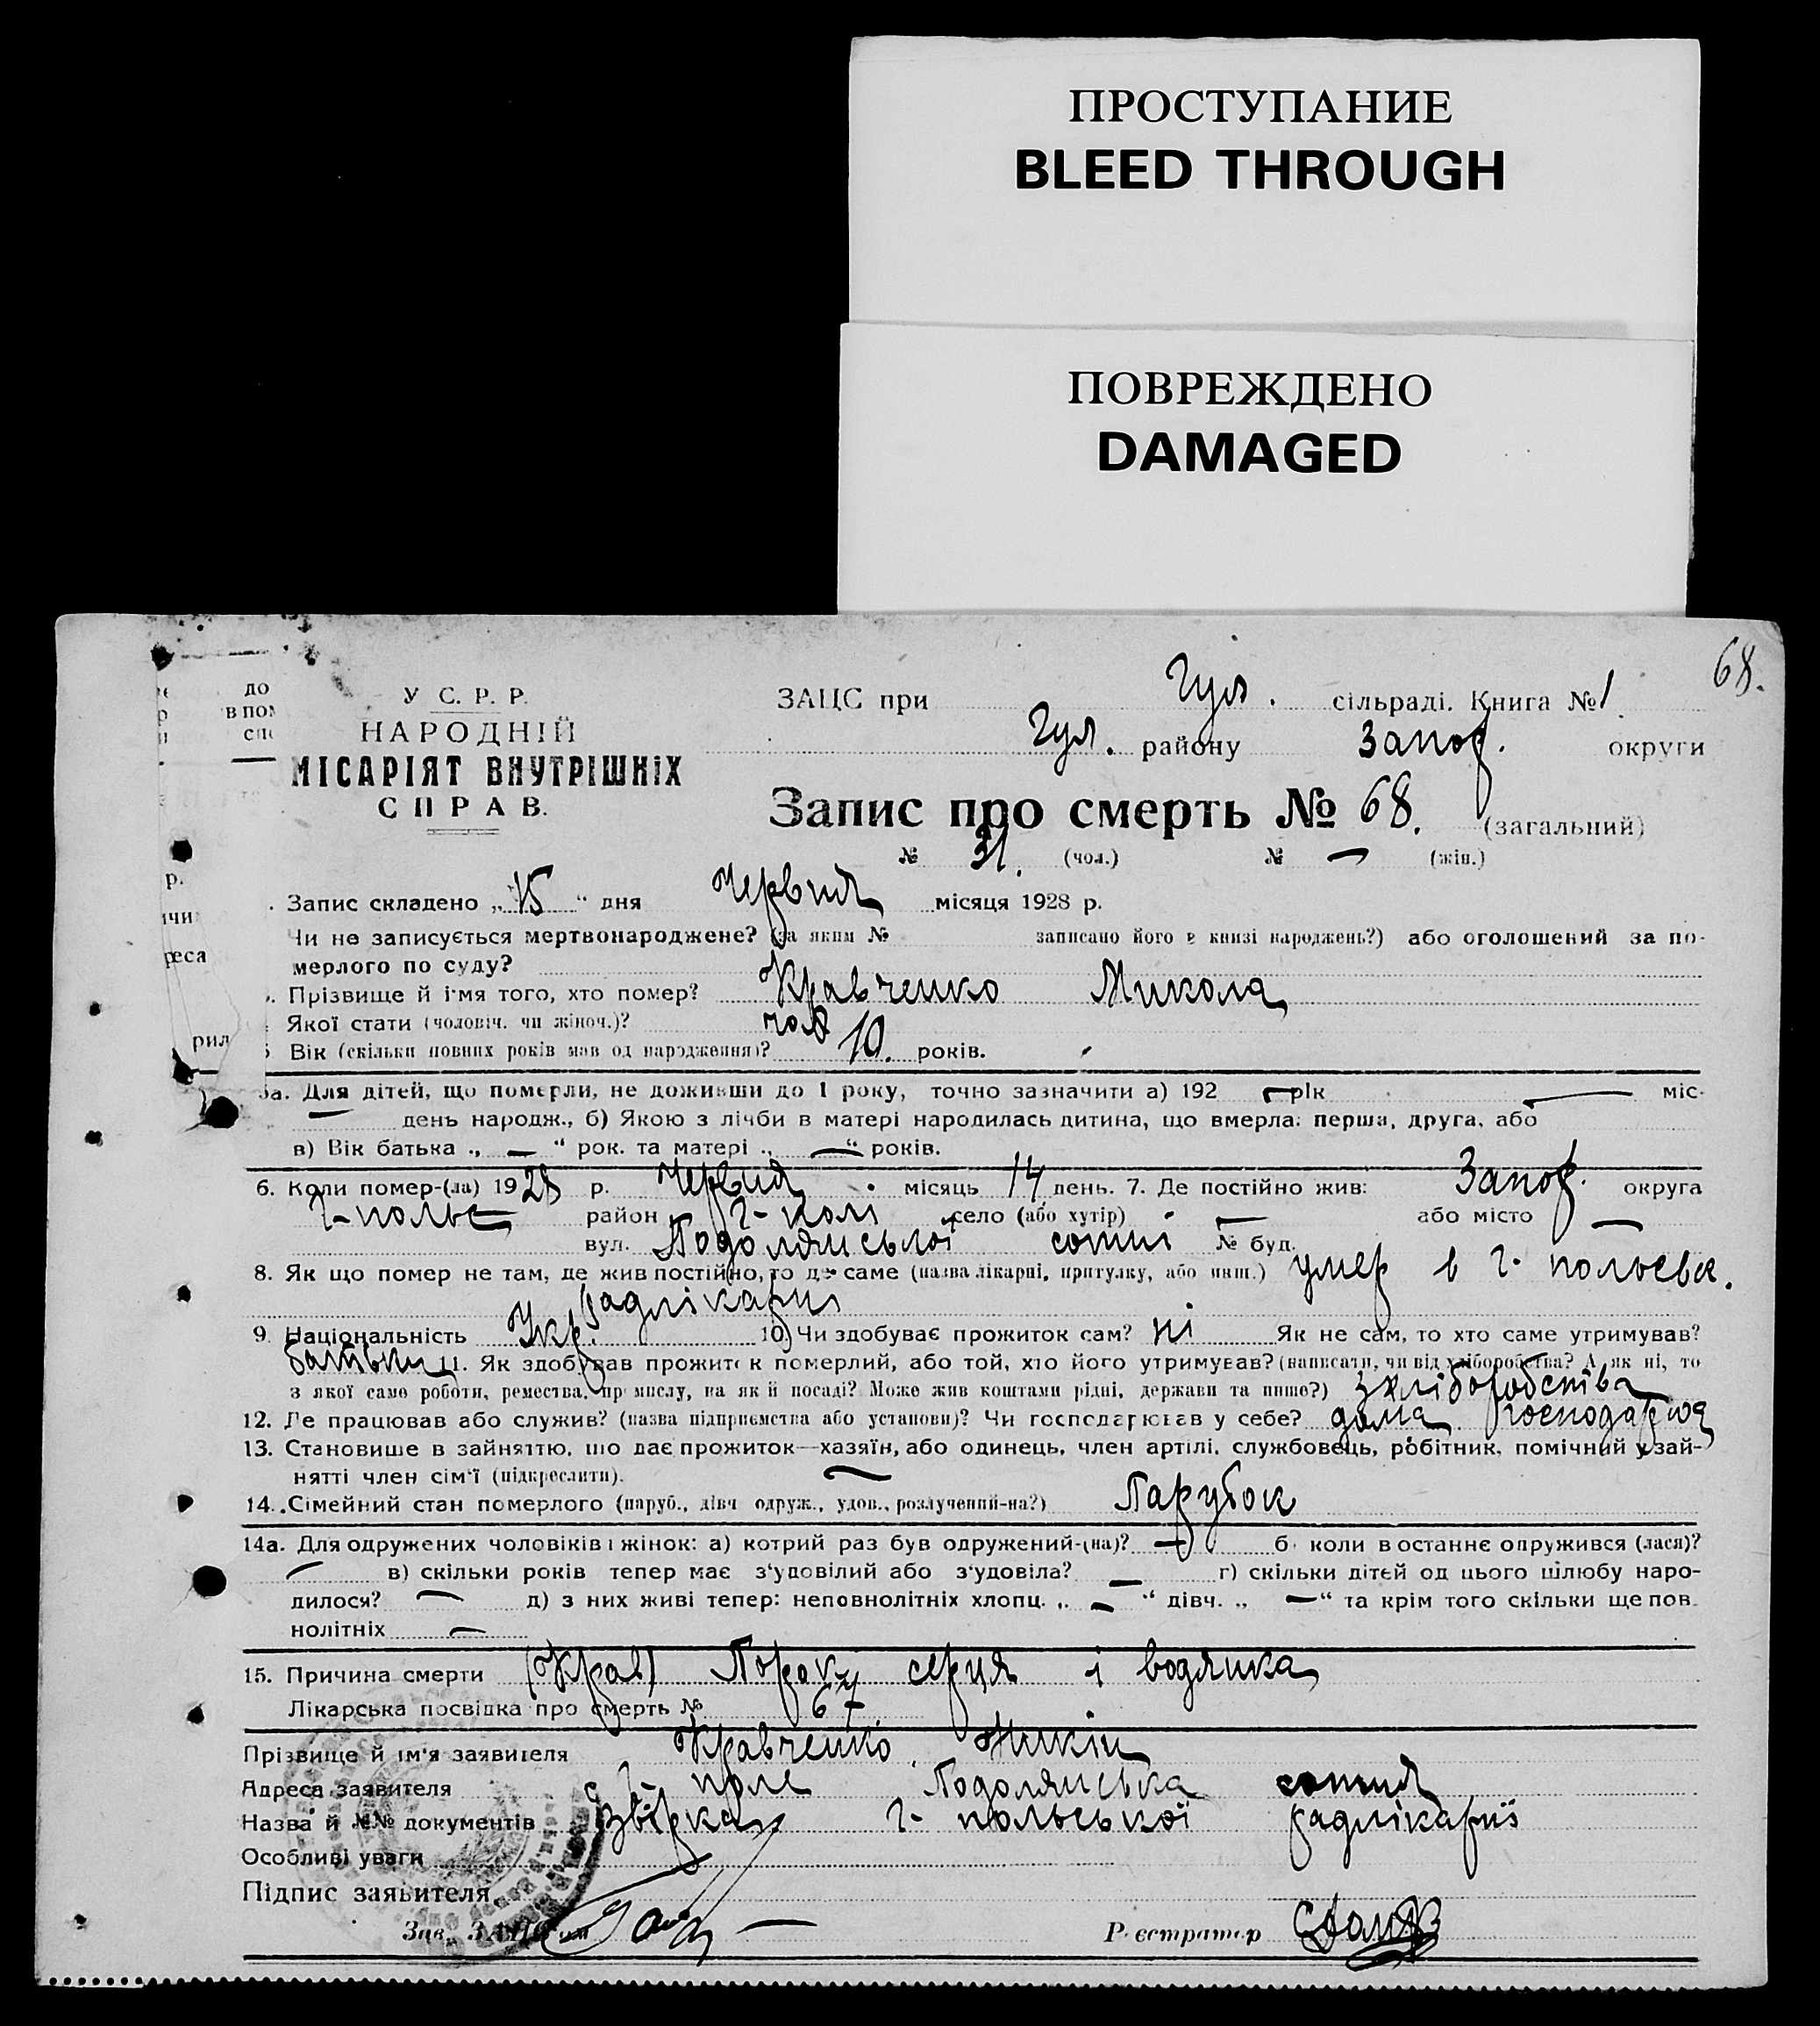 ПРОСТУПАНИЕ
BLEED THROUGH
ПОВРЕЖДЕНО
DAMAGED
68.
У С. Р. Р.
НАРОДНІЙ
МІСАРІЯТ ВНУТРІШНІХ
СПРАВ.
ЗАЦС при Гул. сільраді. Книга № 1
Гул. району Запор. округи
Запис про смерть № 68. (загальний)
№ 31. (чол.) № — (жін.)
Запис складено „15“ дня Червня місяця 1928 р.
Чи не записується мертвонароджене? (за яким № записано його в книзі народжень?) або оголошений за по-
мерлого по суду?
Прізвище й ім'я того, хто помер? Кравченко Микола
Якої стати (чоловіч. чи жіноч.)? чол
Вік (скільки повних років мав од народження)? 10. років.
5а. Для дітей, що померли, не доживши до 1 року, точно зазначити а) 192 — рік — міс.
— день народж., б) Якою з лічби в матері народилась дитина, що вмерла: перша, друга, або
в) Вік батька „ — “ рок. та матері „ — “ років.
6. Коли помер-(ла) 1928 р. Червня місяць 14 день. 7. Де постійно жив: Запор. округа
Г-польс район Г-полі село (або хутір) — або місто —
вул. Подолянської сотні № буд.
8. Як що помер не там, де жив постійно, то де саме (назва лікарні, притулку, або инш.) умер в Г. польськ.
радлікарні
9. Національність Укр. 10) Чи здобуває прожиток сам? ні Як не сам, то хто саме утримував?
батьки 11. Як здобував прожиток померлий, або той, хто його утримував? (написати, чи від хліборобства? А як ні, то
з якої саме роботи, ремества, промислу, на якій посаді? Може жив коштами рідні, держави та инше?) з хліборобства
12. Де працював або служив? (назва підприємства або установи)? Чи господарював у себе? дома господарюв
13. Становище в зайняттю, що дає прожиток—хазяїн, або одинець, член артілі, службовець, робітник, помічний у зай-
нятті член сім'ї (підкреслити). —
14. Сімейний стан померлого (паруб., дівч одруж., удов., розлучений-на?) Парубок
14а. Для одружених чоловіків і жінок: а) котрий раз був одружений-(на)? — б) коли востаннє одружився (лася)?
— в) скільки років тепер має з'удовілий або з'удовіла? — г) скільки дітей од цього шлюбу наро-
дилося? — д) з них живі тепер: неповнолітніх хлопц. „ — “ дівч. „ — “ та крім того скільки ще пов-
нолітніх —
15. Причина смерти (Крав) Пороку серця і водянка
Лікарська посвідка про смерть № 67
Прізвище й ім'я заявителя Кравченко Микін
Адреса заявителя с Г- поле Подолянська сотня
Назва й №№ документів Г- польської радлікарні
Особливі уваги
Підпис заявителя
Зав. ЗАЦС'ом
Реєстратор